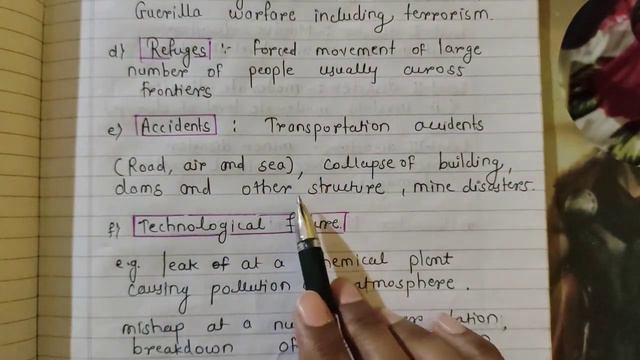 Guerilla warfare including terrorism.
d) Refuges :- forced movement of large
number of people usually across
frontiers
e) Accidents : Transportation acidents
(Road, air and sea), collapse of building,
dams and other structure, mine disasters.
f) Technological
e.g. leak of at a chemical plant
causing pollution atmosphere.
mishap at a
breakdown of